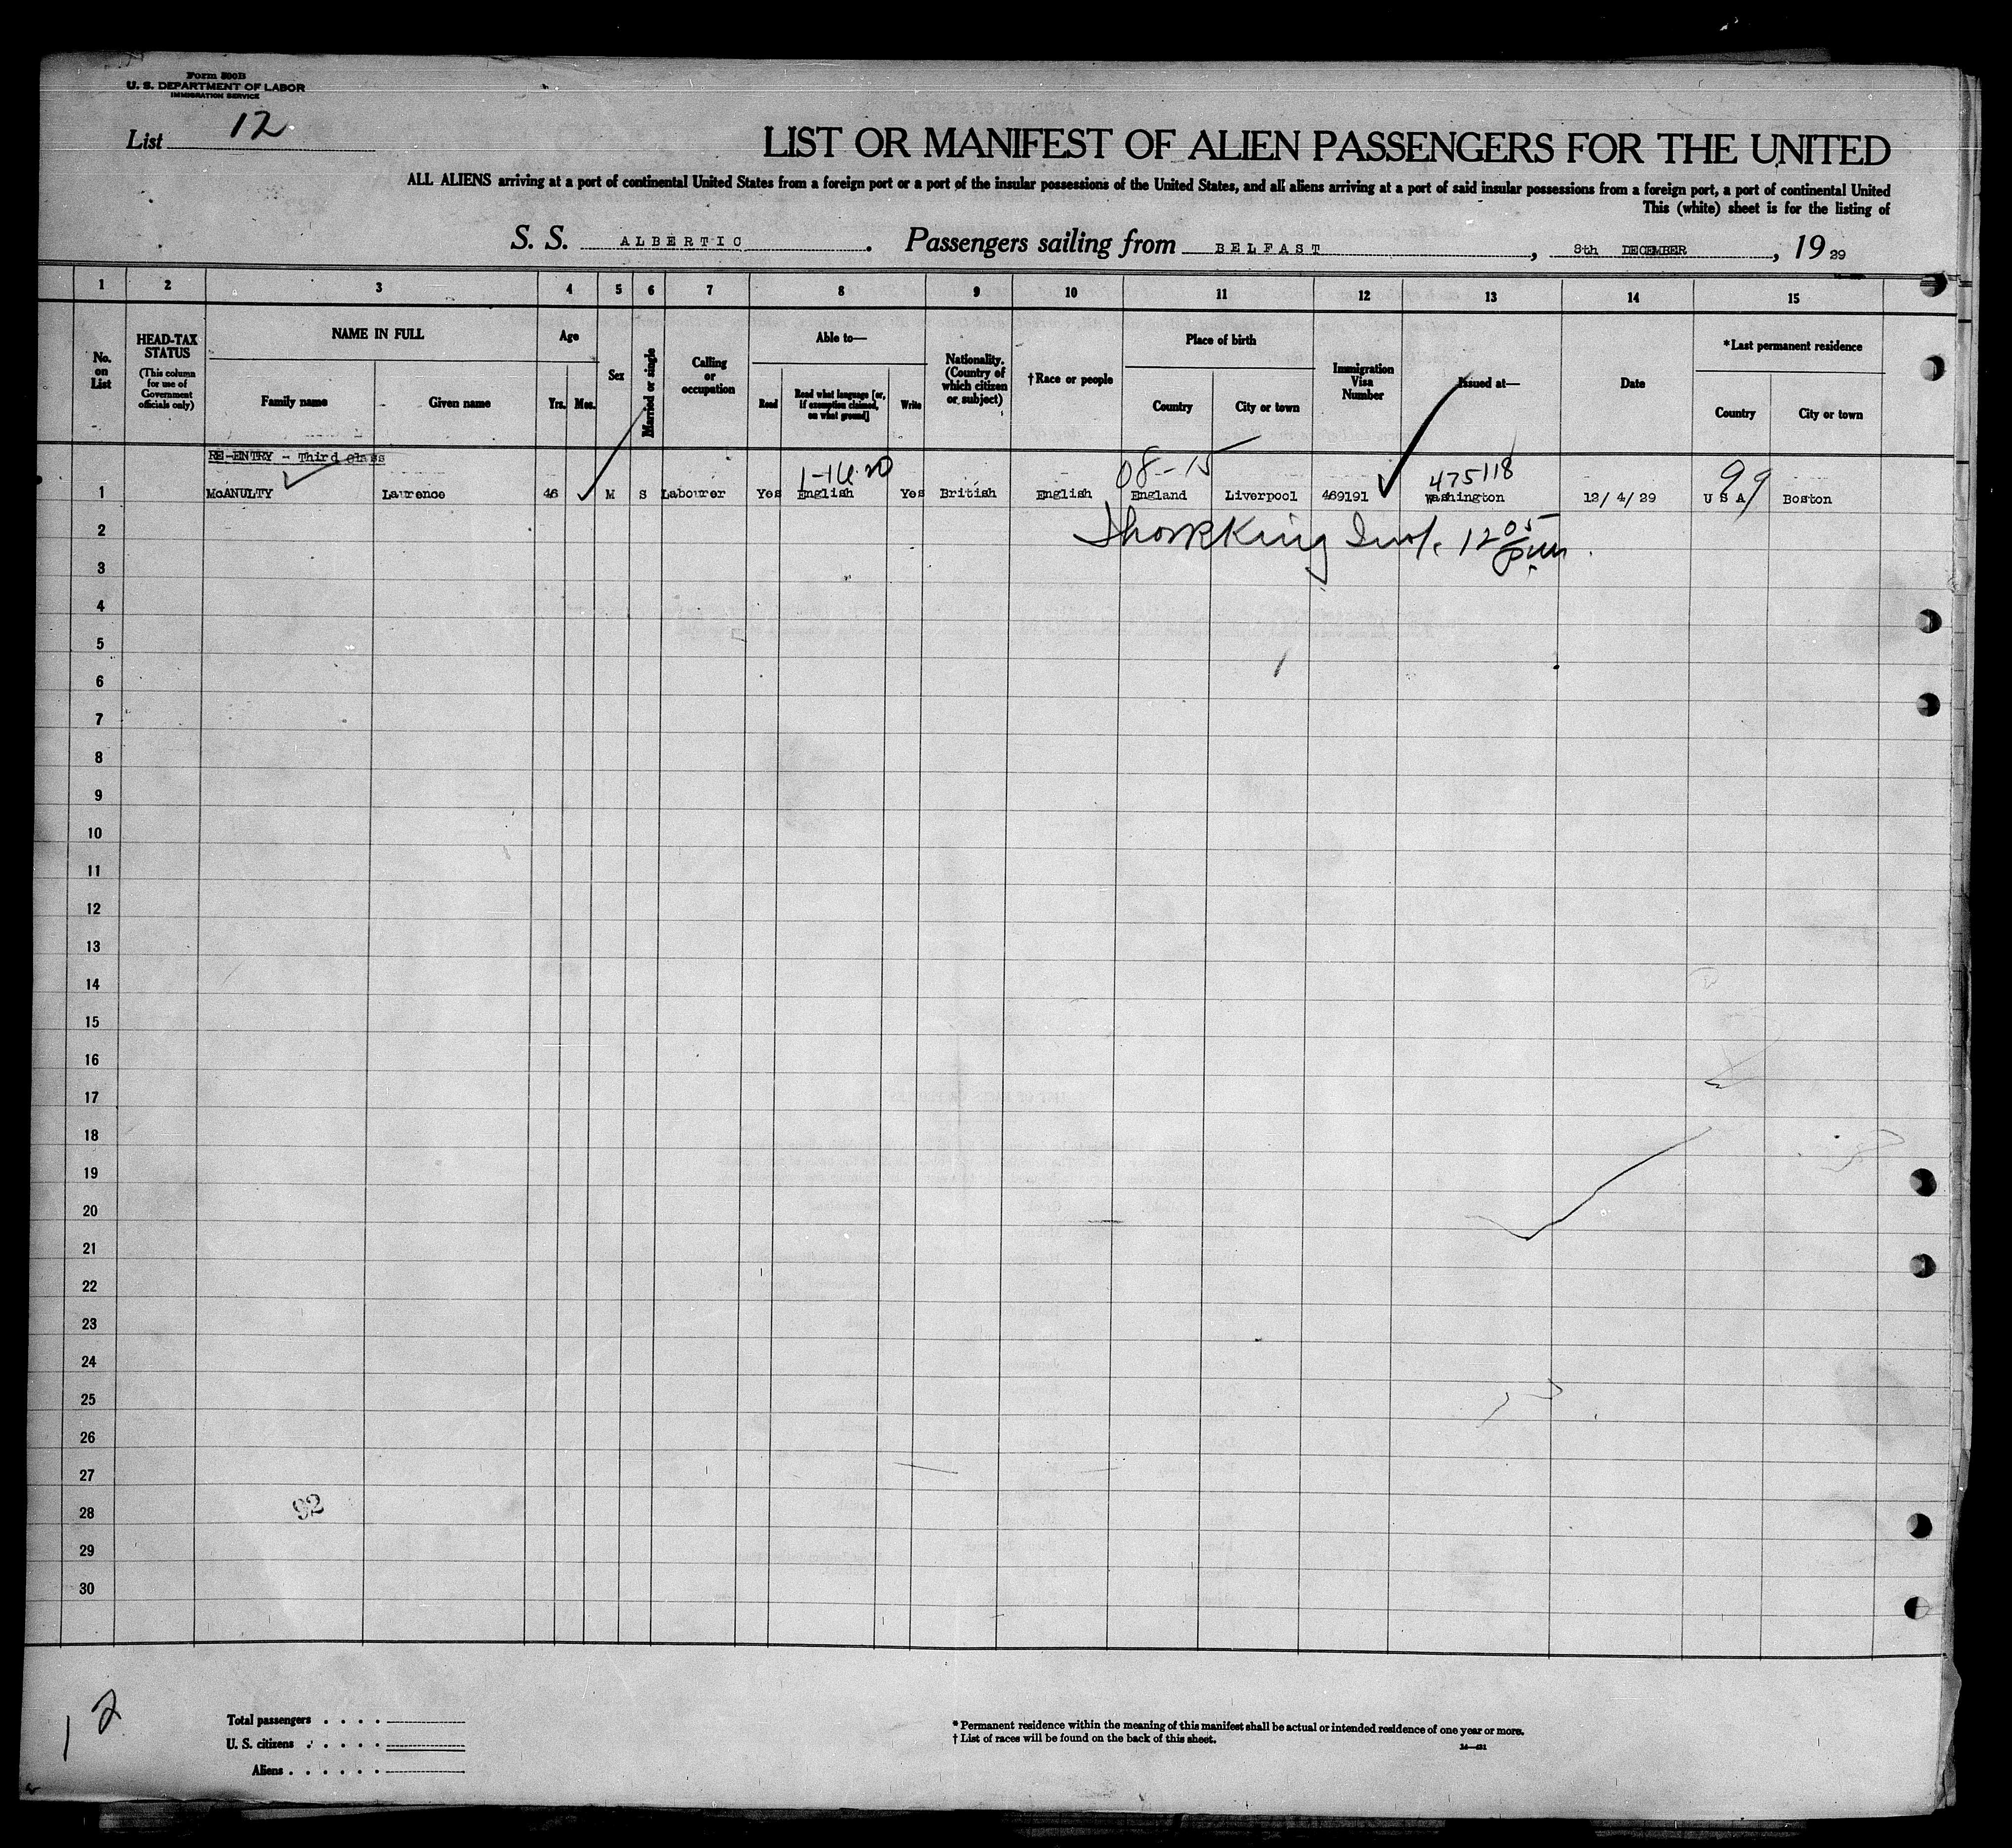 Form 500B
U. S. DEPARTMENT OF LABOR
IMMIGRATION SERVICE
List 12
LIST OR MANIFEST OF ALIEN PASSENGERS FOR THE UNITED
ALL ALIENS arriving at a port of continental United States from a foreign port or a port of the insular possessions of the United States, and all aliens arriving at a port of said insular possessions from a foreign port, a port of continental United
This (white) sheet is for the listing of
S. S. ALBERTIC. Passengers sailing from BELFAST, 8th DECEMBER, 19 29
1 2 3 4 5 6 7 8 9 10 11 12 13 14 15
No. on List
HEAD-TAX STATUS (This column for use of Government officials only)
NAME IN FULL
Family name Given name
Age
Yrs. Mos.
Sex
Married or single
Calling or occupation
Able to—
Read Read what language [or, if exemption claimed, on what ground] Write
Nationality. (Country of which citizen or subject)
†Race or people
Place of birth
Country City or town
Immigration Visa Number
Issued at—
Date
*Last permanent residence
Country City or town
RE-ENTRY - Third class
1-14-20 08-15 475118 99
1 McANULTY Laurence 46 M S Labourer Yes English Yes British English England Liverpool 469191 Washington 12/ 4/ 29 U S A Boston
King 12 05
2
3
4
5
6
7
8
9
10
11
12
13
14
15
16
17
18
19
20
21
22
23
24
25
26
27
28
92
29
30
12
Total passengers . . . .
U. S. citizens . . . . .
Aliens . . . . . .
* Permanent residence within the meaning of this manifest shall be actual or intended residence of one year or more.
† List of races will be found on the back of this sheet.